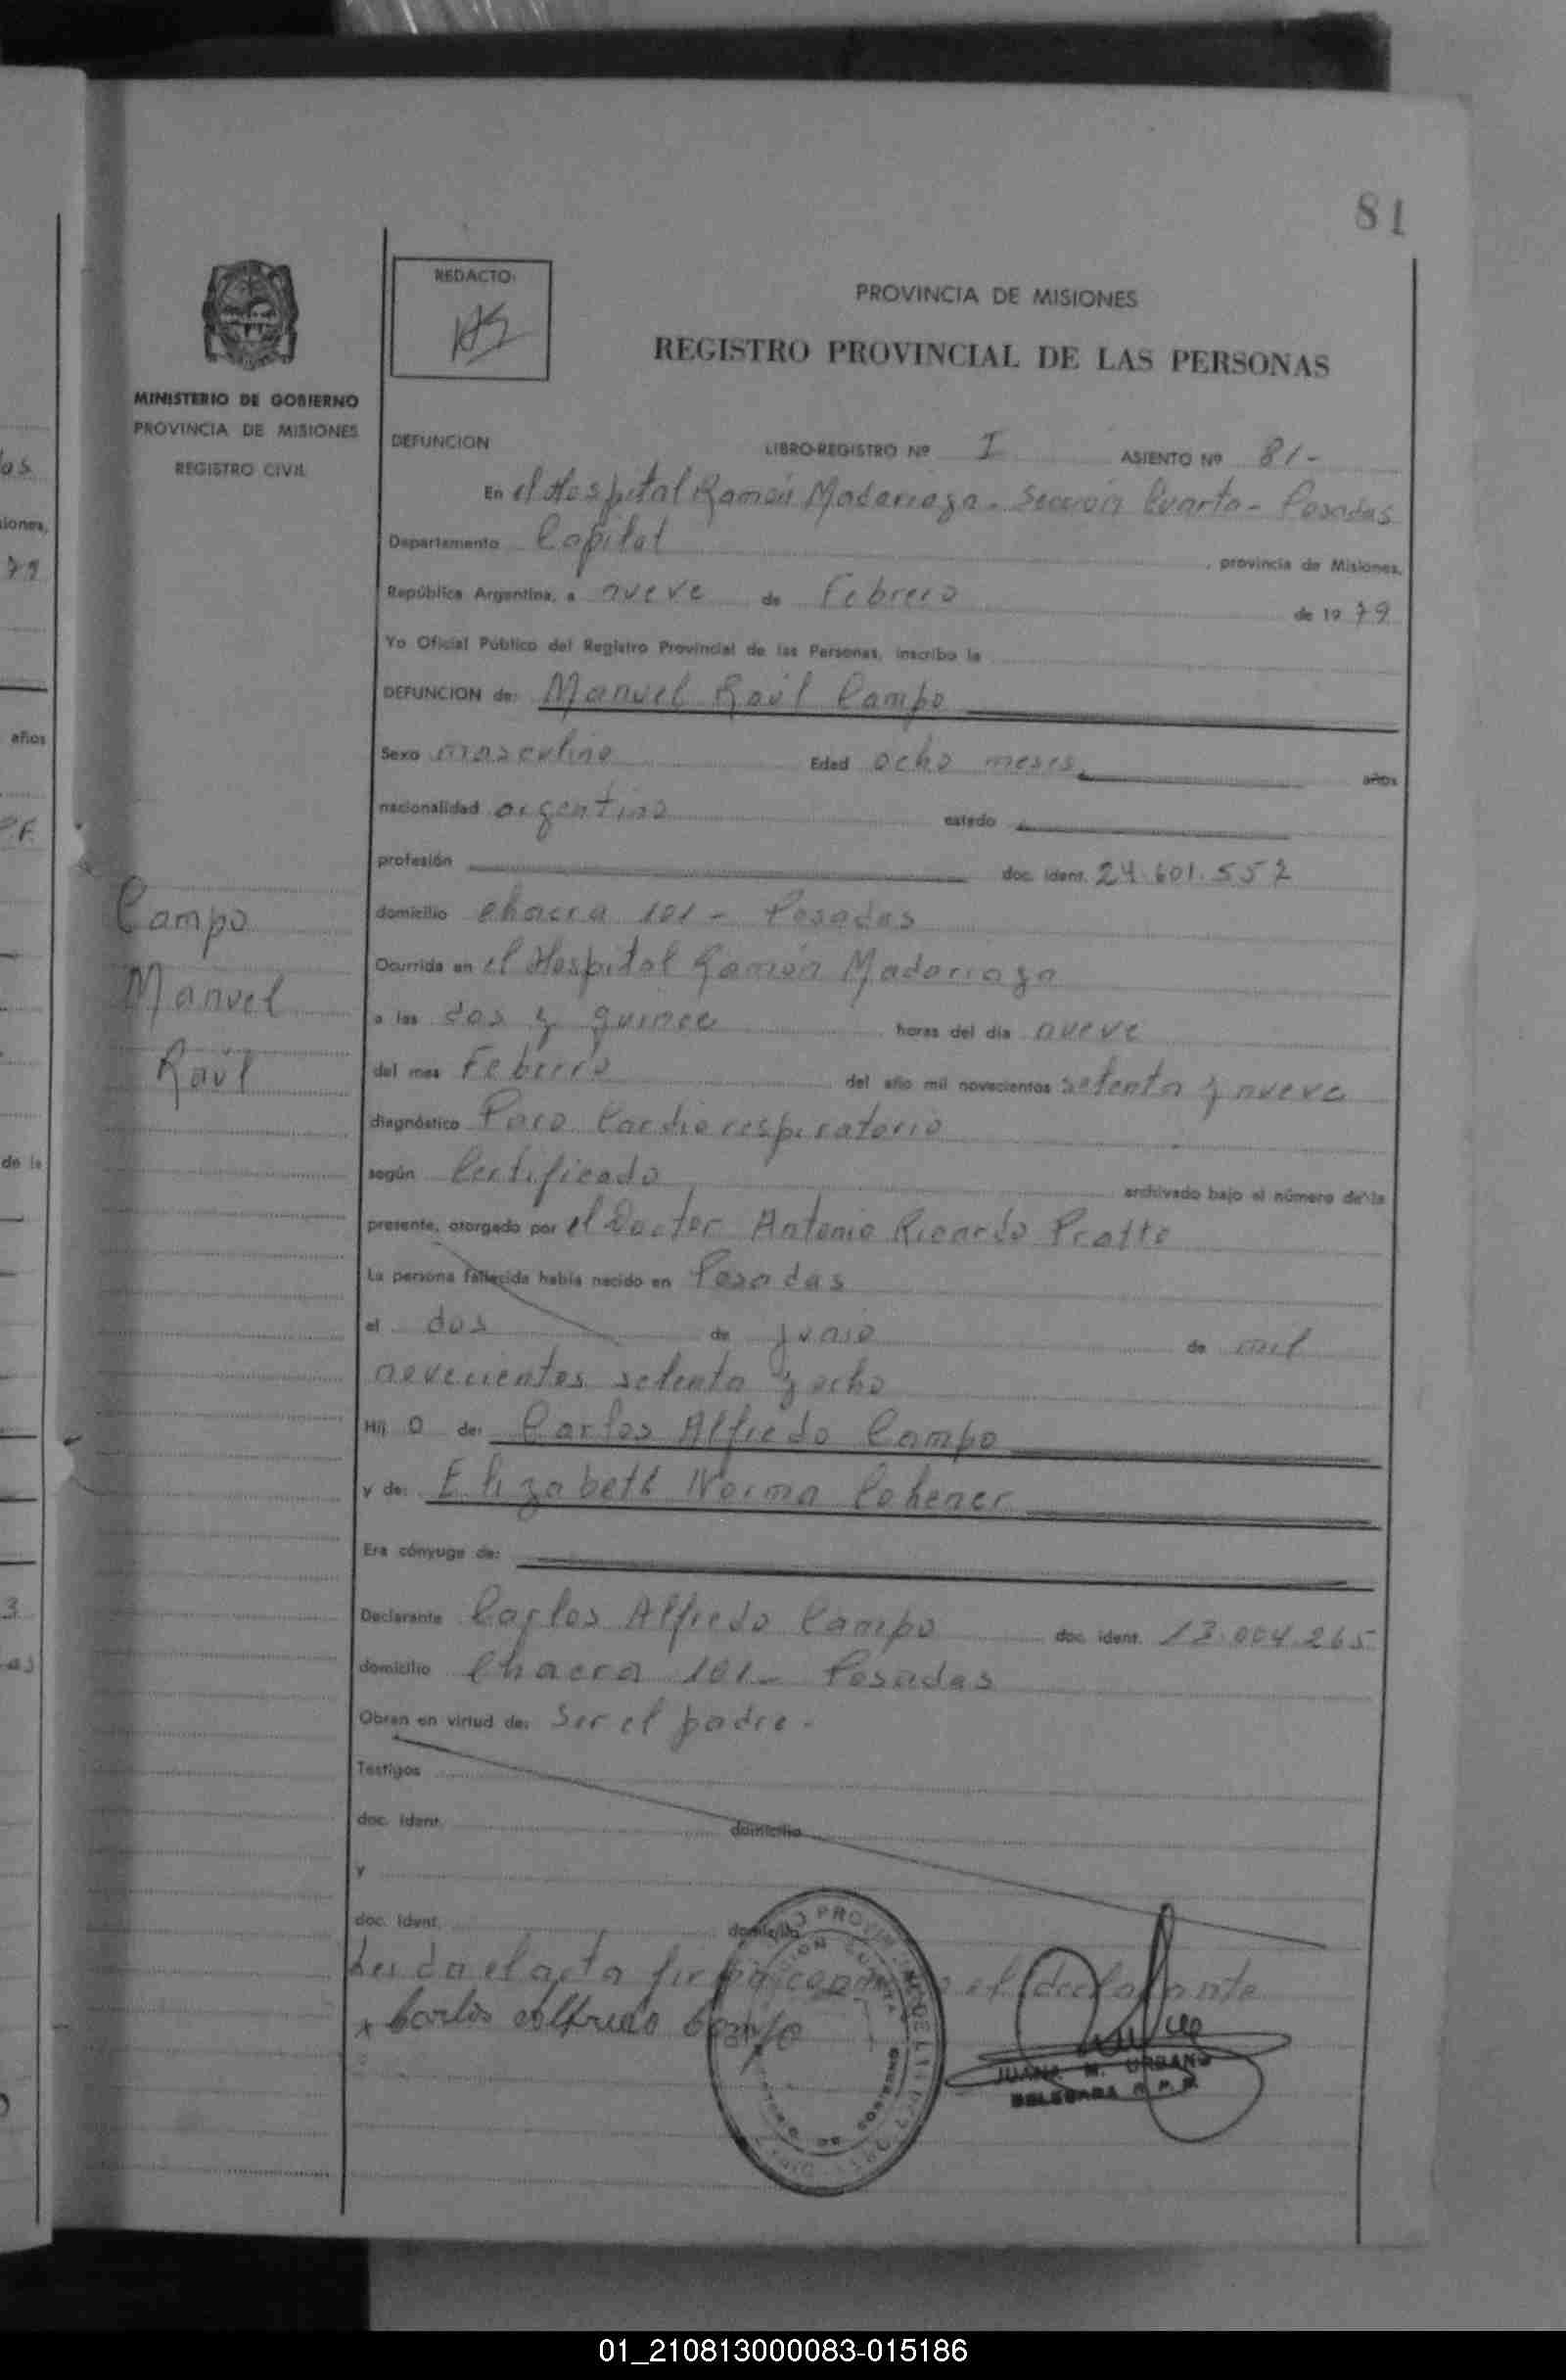 81
REDACTO:
PROVINCIA DE MISIONES
REGISTRO PROVINCIAL DE LAS PERSONAS
MINISTERIO DE GOBIERNO
PROVINCIA DE MISIONES
REGISTRO CIVIL
DEFUNCION LIBRO-REGISTRO Nº I ASIENTO Nº 81-
En el Hospital Ramón Madariaga - Sección Cuarta - Posadas
Departamento Capital , provincia de Misiones,
República Argentina, a nueve de Febrero de 19 79
Yo Oficial Público del Registro Provincial de las Personas, inscribo la
DEFUNCION de: Manuel Raúl Campo
Sexo masculino Edad ocho meses años
nacionalidad argentino estado
profesión doc. ident. 24.601.557
domicilio chacra 101 - Posadas
Campo
Manuel
Raúl
Ocurrida en el Hospital Ramón Madariaga
a las dos y quince horas del día nueve
del mes Febrero del año mil novecientos setenta y nueve
diagnóstico Paro Cardiorespiratorio
según Certificado archivado bajo el número de la
presente, otorgado por el Doctor Antonio Ricardo Pratto
La persona fallecida había nacido en Posadas
el dos de junio de mil
novecientos setenta y ocho
Hij o de: Carlos Alfredo Campo
y de: Elizabeth Norma Cohener
Era cónyuge de:
Declarante Carlos Alfredo Campo doc. ident. 13.004.265
domicilio Chacra 101 - Posadas
Obran en virtud de: Ser el padre -
Testigos
doc. ident. domicilio
y
doc. ident. domicilio
Leida el acta firma el declarante
x Carlos Alfredo Campo
JUANA M. URBANO
DELEGADA R. P. P.
01_210813000083-015186